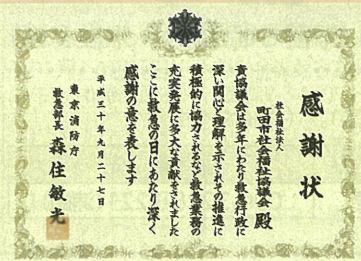 感謝状
社会福祉法人
町田市社会福祉協議会 殿
貴協議会は多年にわたり救急行政に
深い関心と理解を示されその推進に
積極的に協力されるなど救急業務の
充実発展に多大な貢献をされました
ここに救急の日にあたり深く
感謝の意を表します
平成三十年九月二十七日
東京消防庁
救急部長 森住敏光